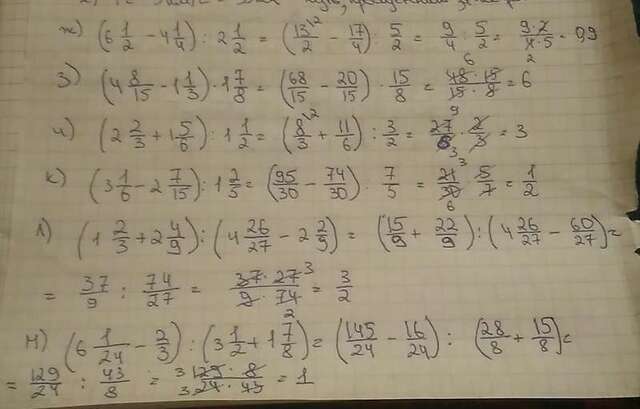 ж) (6 1/2 - 4 1/4) : 2 1/2 = (13/2 - 17/4) : 5/2 = 9/4 : 5/2 = 9·2/4·5 = 0,9
з) (4 8/15 - 1 1/3) · 1 7/8 = (68/15 - 20/15) · 15/8 = 48·15/15·8 = 6
и) (2 2/3 + 1 5/6) : 1 1/2 = (8/3 + 11/6) : 3/2 = 27/6 · 2/3 = 3
к) (3 1/6 - 2 7/15) : 1 2/5 = (95/30 - 74/30) : 7/5 = 21/30 · 5/7 = 1/2
л) (1 2/3 + 2 4/9) : (4 26/27 - 2 2/9) = (15/9 + 22/9) : (4 26/27 - 60/27) =
= 37/9 : 74/27 = 37·27/9·74 = 3/2
м) (6 1/24 - 2/3) : (3 1/2 + 1 7/8) = (145/24 - 16/24) : (28/8 + 15/8) =
= 129/24 : 43/8 = 129·8/24·43 = 1